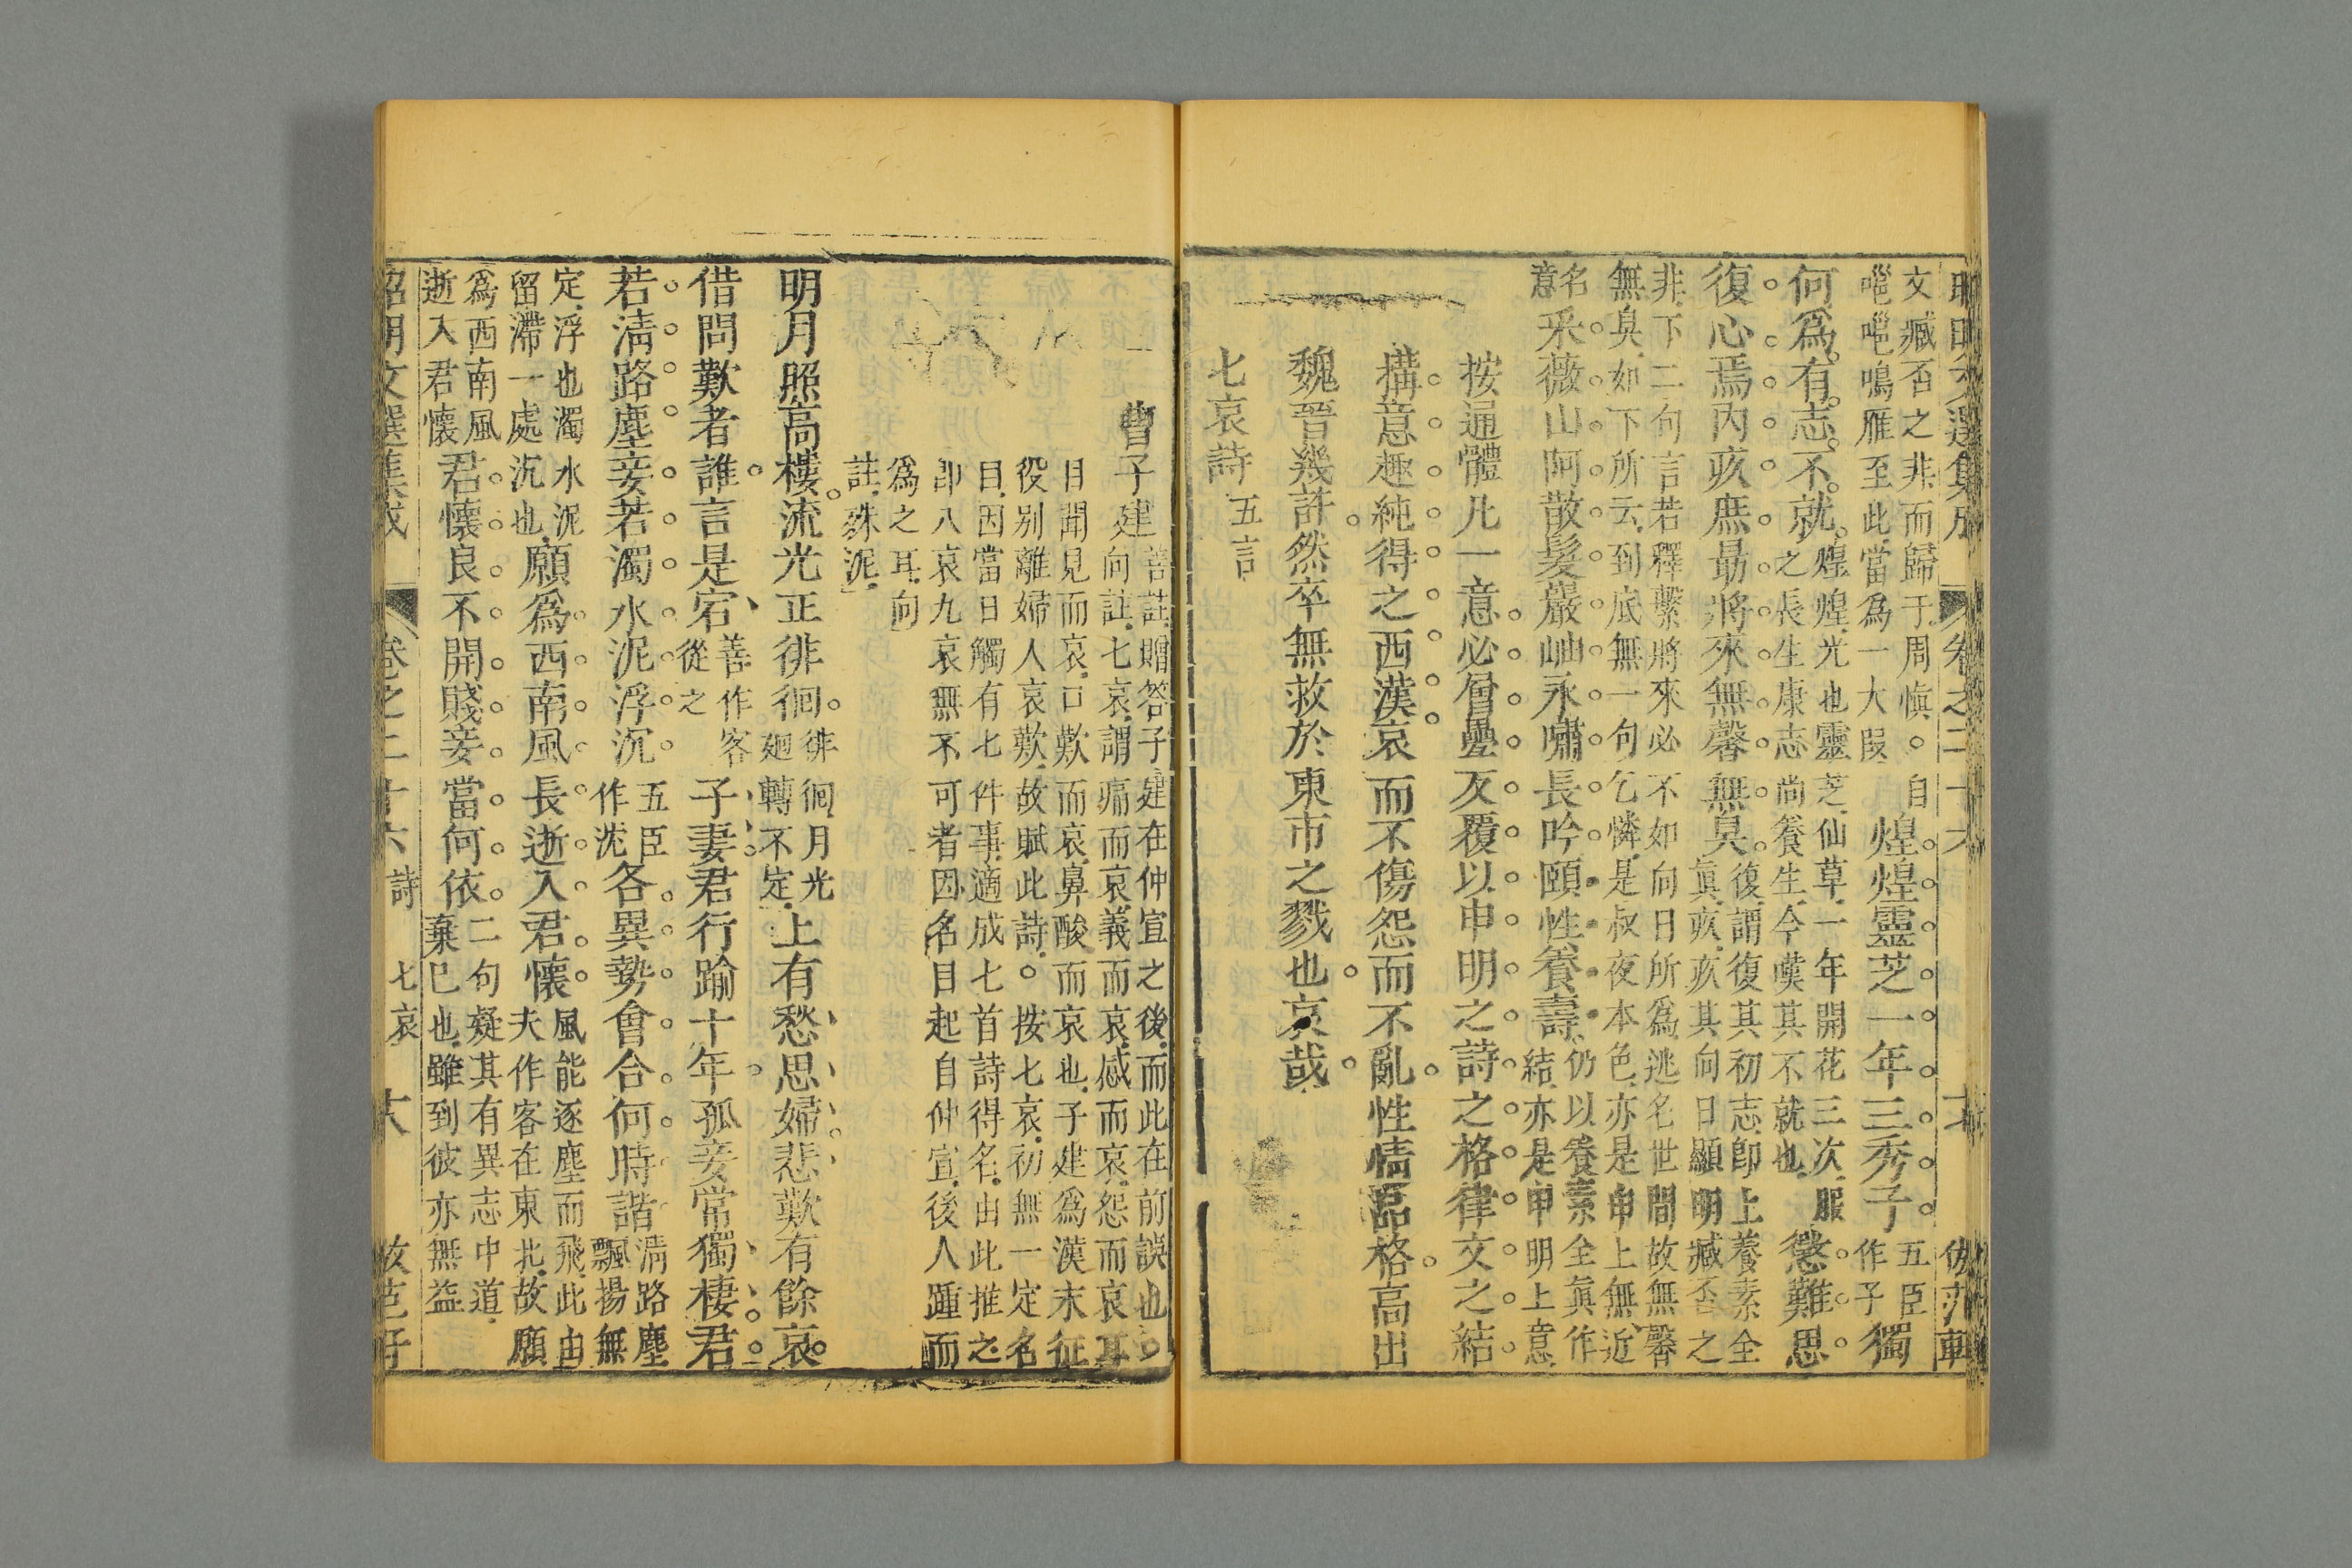 昭明文選集成 卷之二十六
文臧否之非而歸于周愼。自
嗈嗈鳴雁至此當爲一大段
煌煌靈芝一年三秀予
五臣
作子
獨
何爲有志不就
煌煌光也靈芝仙草一年開花三次服
之長生康志尚養生今嘆其不就也
懲難思
復心焉內疚庶勗將來無馨無臭
復謂復其初志卽上養素全
眞疚疚其向日顯明臧否之
非下二句言若釋繫將來必不如向日所爲逃名世間故無馨
無臭如下所云到底無一句乞憐是叔夜本色亦是申上無近
名
意
采薇山阿散髮巖岫永嘯長吟頤性養壽
仍以養素全眞作
結亦是申明上意
按通體凡一意必層疊反覆以申明之詩之格律文之結
搆意趣純得之西漢哀而不傷怨而不亂性情品格高出
魏晉幾許然卒無救於東市之戮也哀哉
七哀詩 五言
曹子建
善註贈答子建在仲宣之後而此在前誤也
向註七哀謂痛而哀義而哀感而哀怨而哀耳
目聞見而哀口歎而哀鼻酸而哀也子建爲漢末征
役别離婦人哀歎故賦此詩。按七哀初無一定名
目因當日觸有七件事適成七首詩得名由此推之
卽八哀九哀無不可者因名目起自仲宣後人踵而
爲之耳向
註殊泥
明月照高樓流光正徘徊
徘徊月光
廻轉不定
上有愁思婦悲歎有餘哀
借問歎者誰言是宕
善作客
從之
子妻君行踰十年孤妾常獨棲君
若淸路塵妾若濁水泥浮沉
五臣
作沈
各異勢會合何時諧
淸路塵
飄揚無
定浮也濁水泥
留滯一處沉也
願爲西南風長逝入君懷
風能逐塵而飛此由
夫作客在東北故願
爲西南風
逝入君懷
君懷良不開賤妾當何依
二句疑其有異志中道
棄已也雖到彼亦無益
昭明文選集成 卷之二十六 詩 七哀